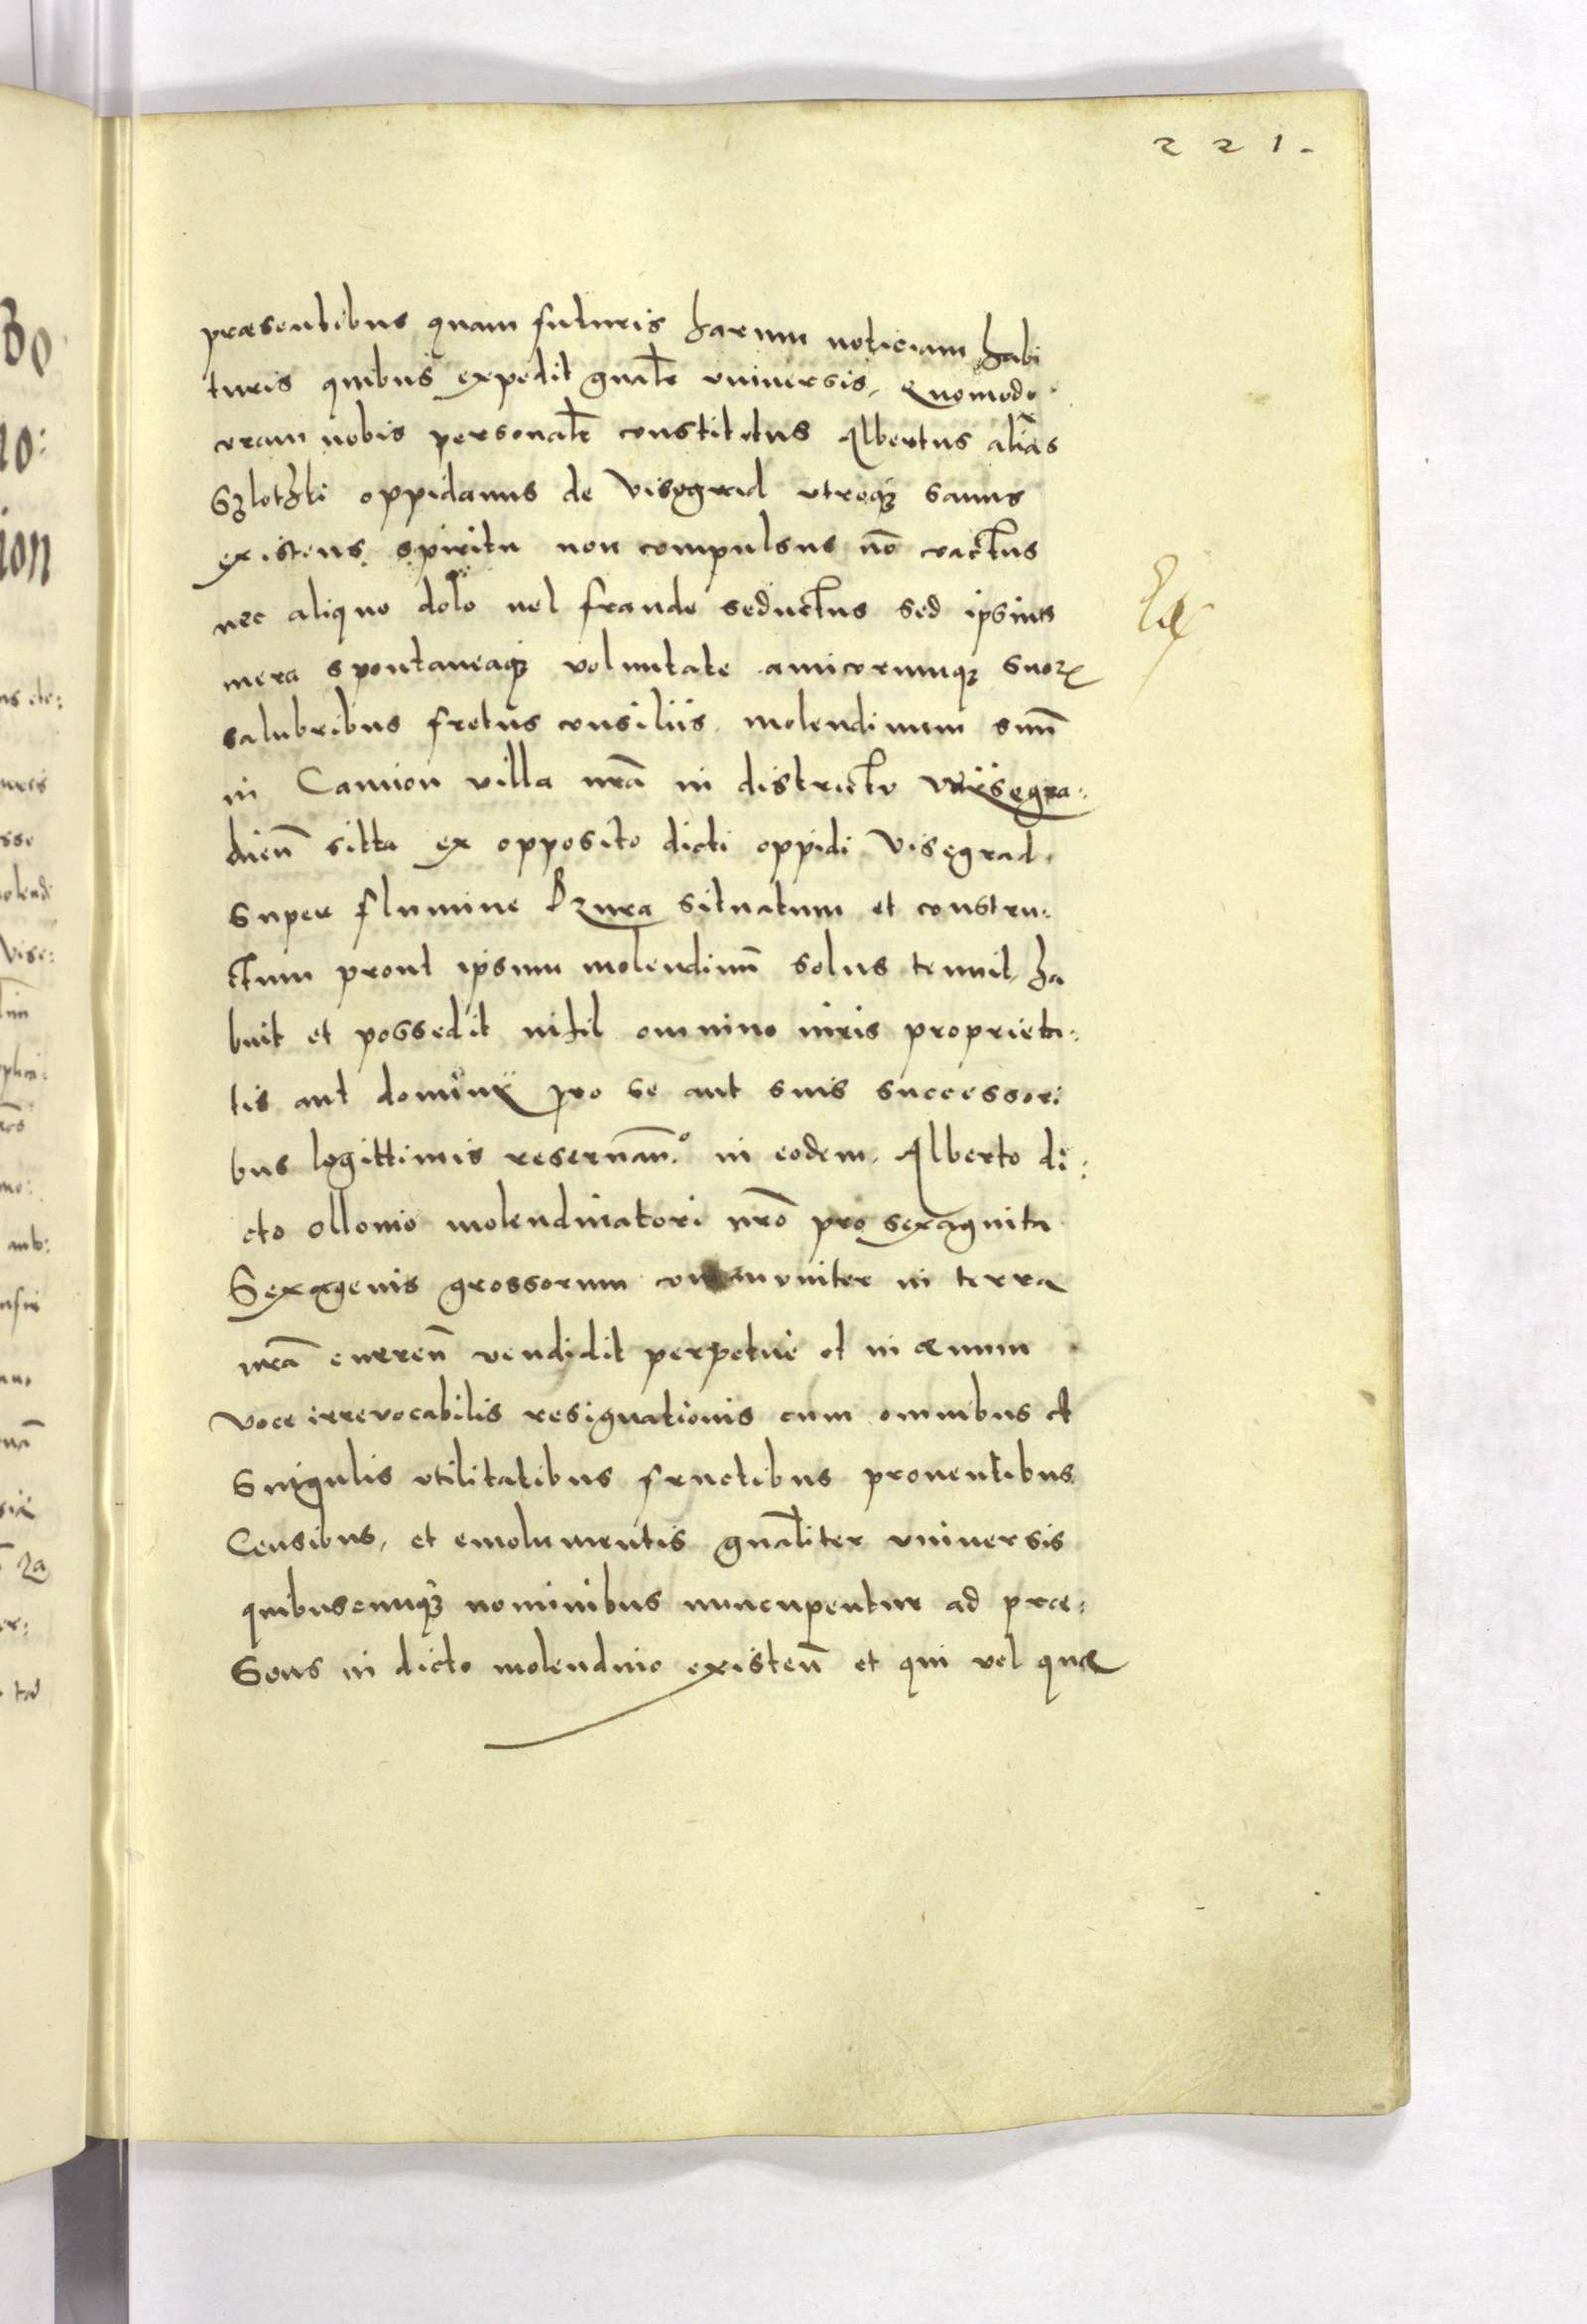 221.
præsentibus quam futuris harum noticiam habi
turis quibus expedit gnãlr vniuersis, Quomodo
coram nobis personalr constitutus Albertus alias
Szlothki oppidanus de Visegrad vtroque sanus
existens spiritu non compulsus nõ coactus
nec aliquo dolo uel fraude seductus sed ipsius
mera spontaneaque voluntate amicorumque suorum
salubribus fretus consiliis molendinum suum̃
in Camion villa nrã in districtu Visegra:
dieñ sitta ex opposito dicti oppidi Visegrad.
super flumine Bzura situatum et constru:
ctum prout ipsum molendinũ solus tenuit, ha
buit et possedit nihil omnino iuris proprieta:
tis aut dominii pro se aut suis successori
bus legittimis reseruan.° in eodem, Alberto di:
cto Ollomo molendinatori nrõ pro sexaguita
Sexagenis grossorum communiter in terra
nrã curreñ vendidit perpetue et in æuum
voce irrevocabilis resignationis cum omnibus et
singulis vtilitatibus fructibus prouentibus
Censibus, et emolumentis gnãliter vniuersis
quibuscumque nominibus nuncupentur ad præ:
sens in dicto molendino existeñ et qui vel quæ